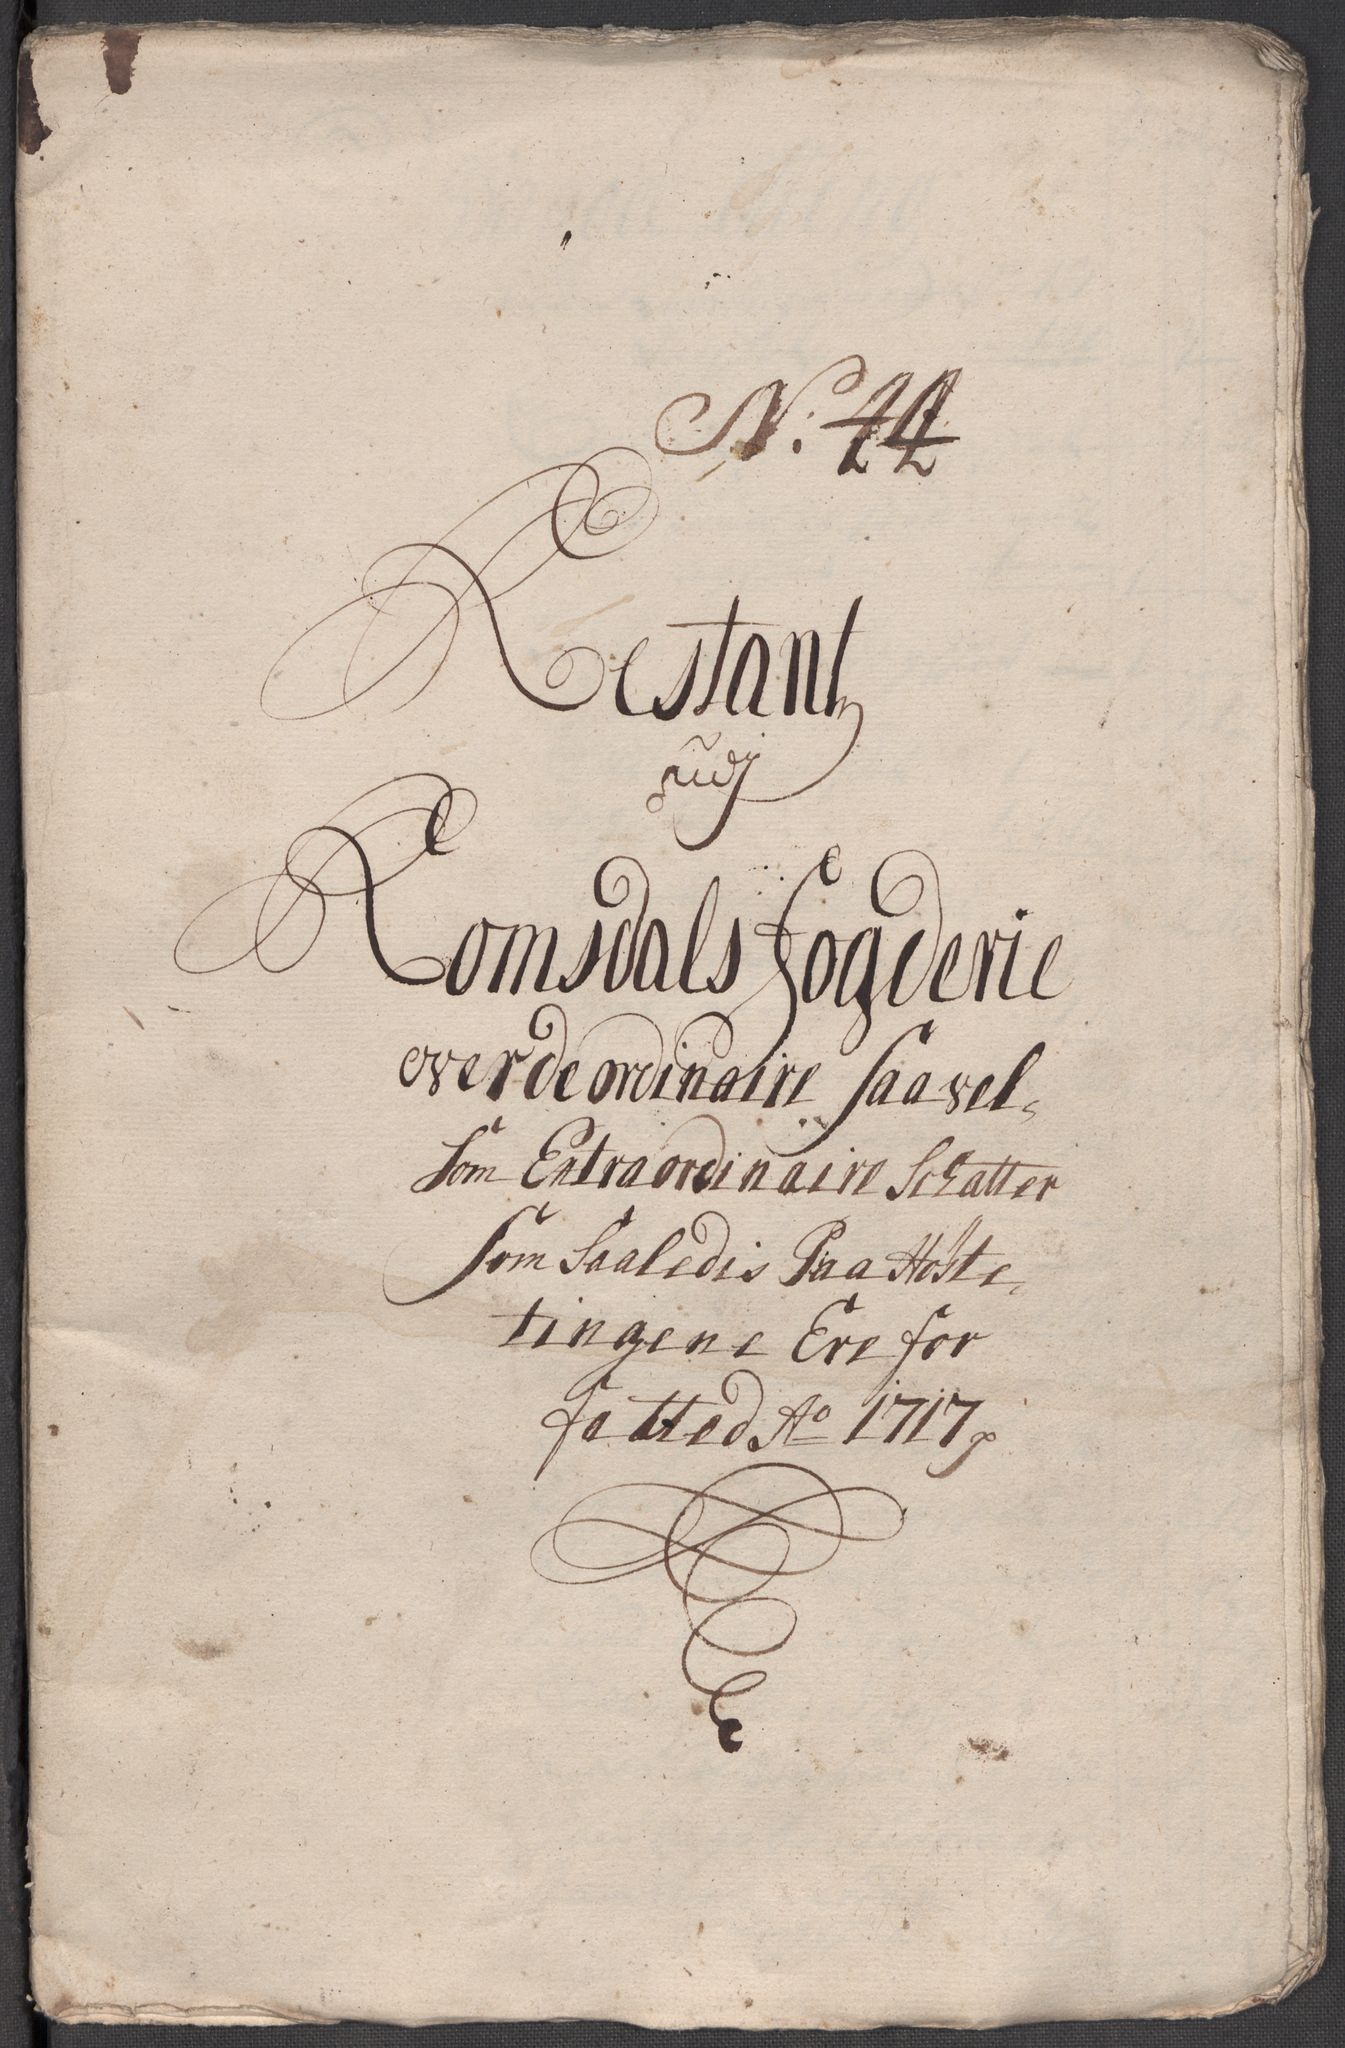 N. 44
Restantz
udj
Romsdals Fogderie
over de ordinaire saavel
som Extraordinaire Schatter
som Saaledis Paa Høste
tingene Ere for
fatted Ao 1717